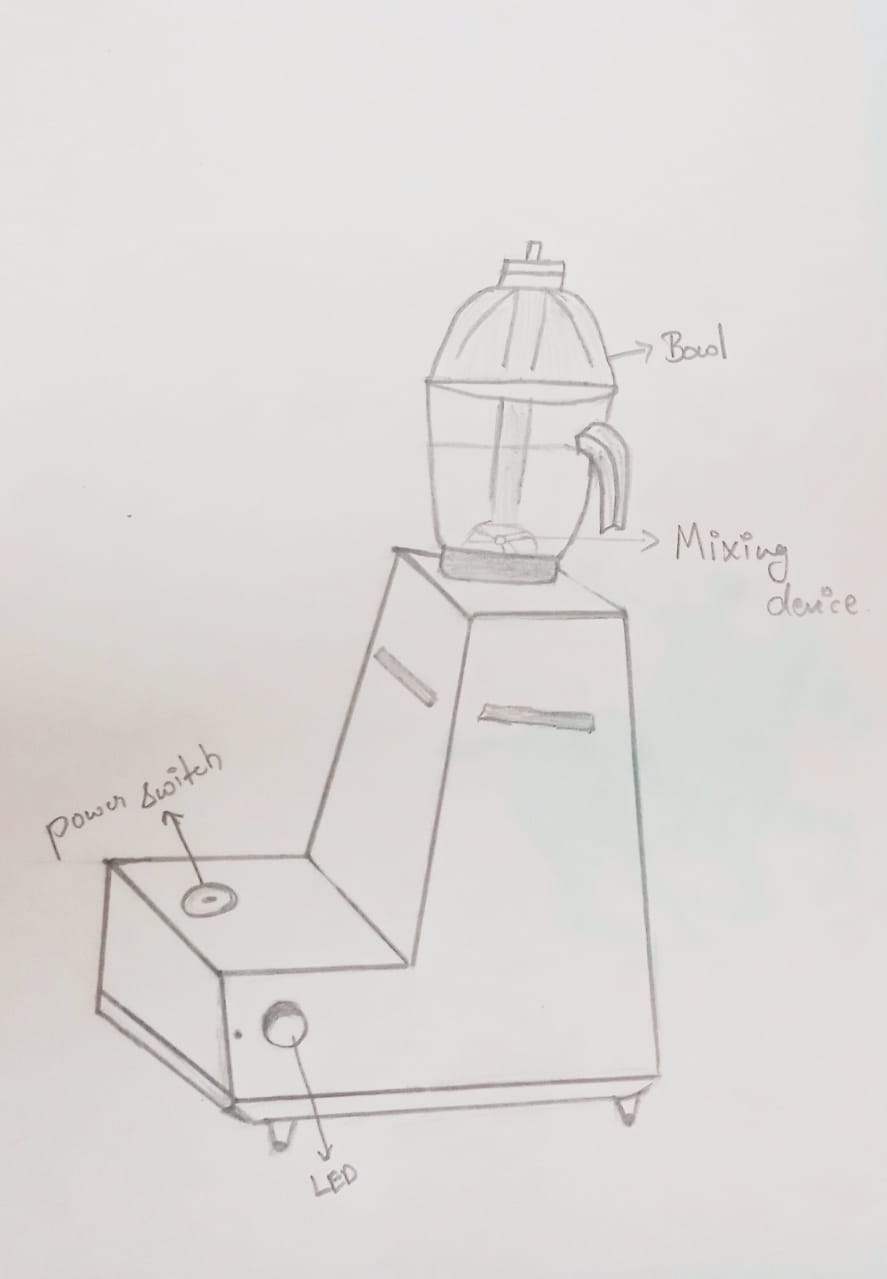 Bowl
Mixing
device
power switch
LED